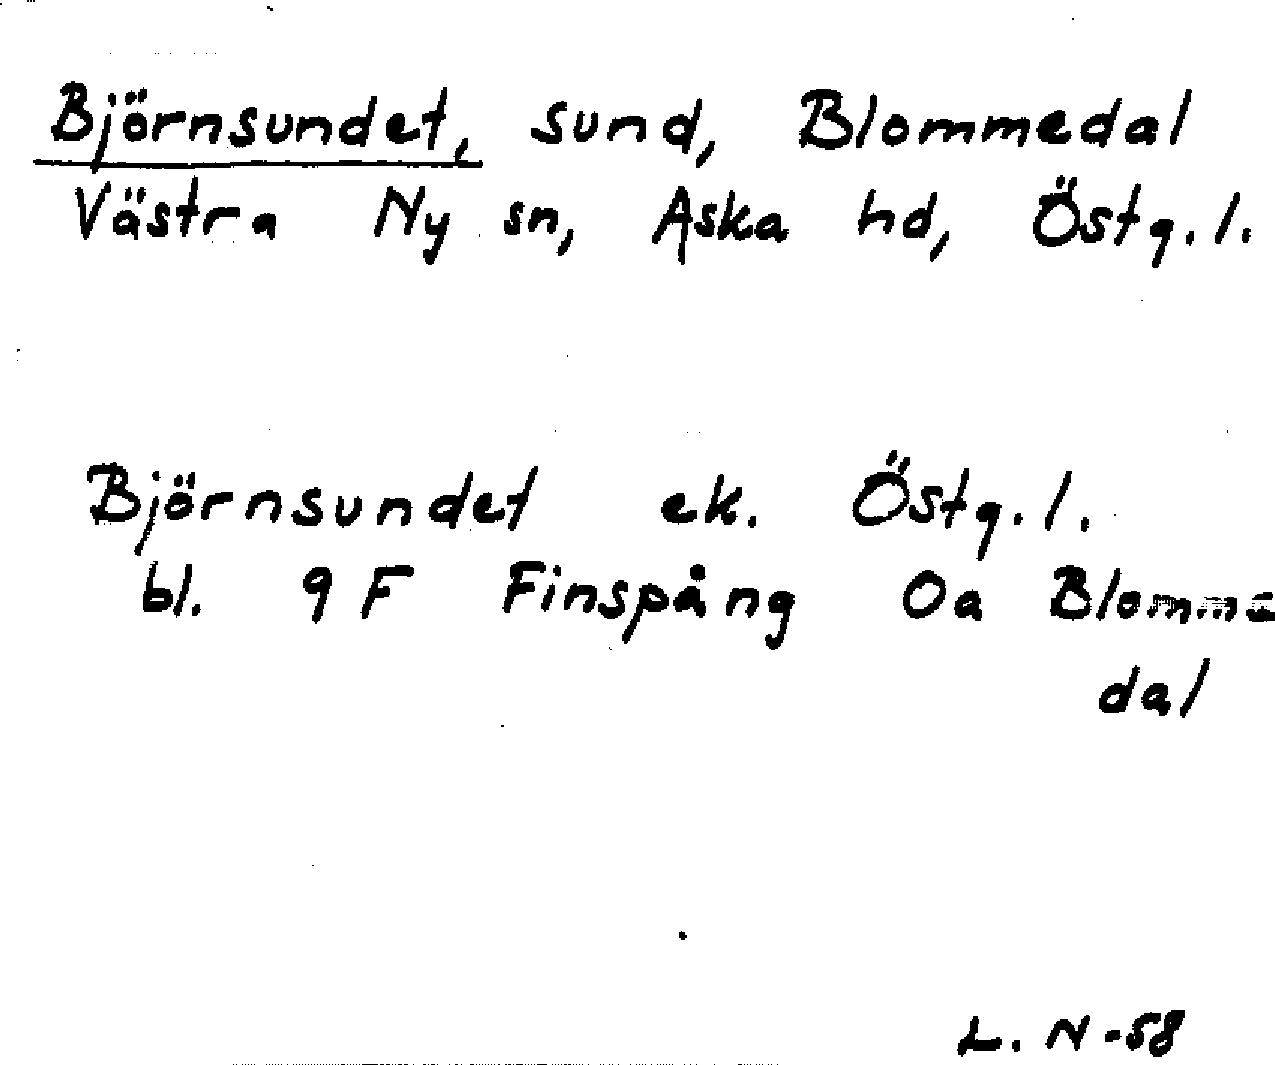 Björnsundet, sund, Blommedal
Västra Ny sn, Aska hd, Östg.l.
Björnsundet ek. Östg.l.
bl. 9F Finspång 0a Blomme
dal
L. N -58